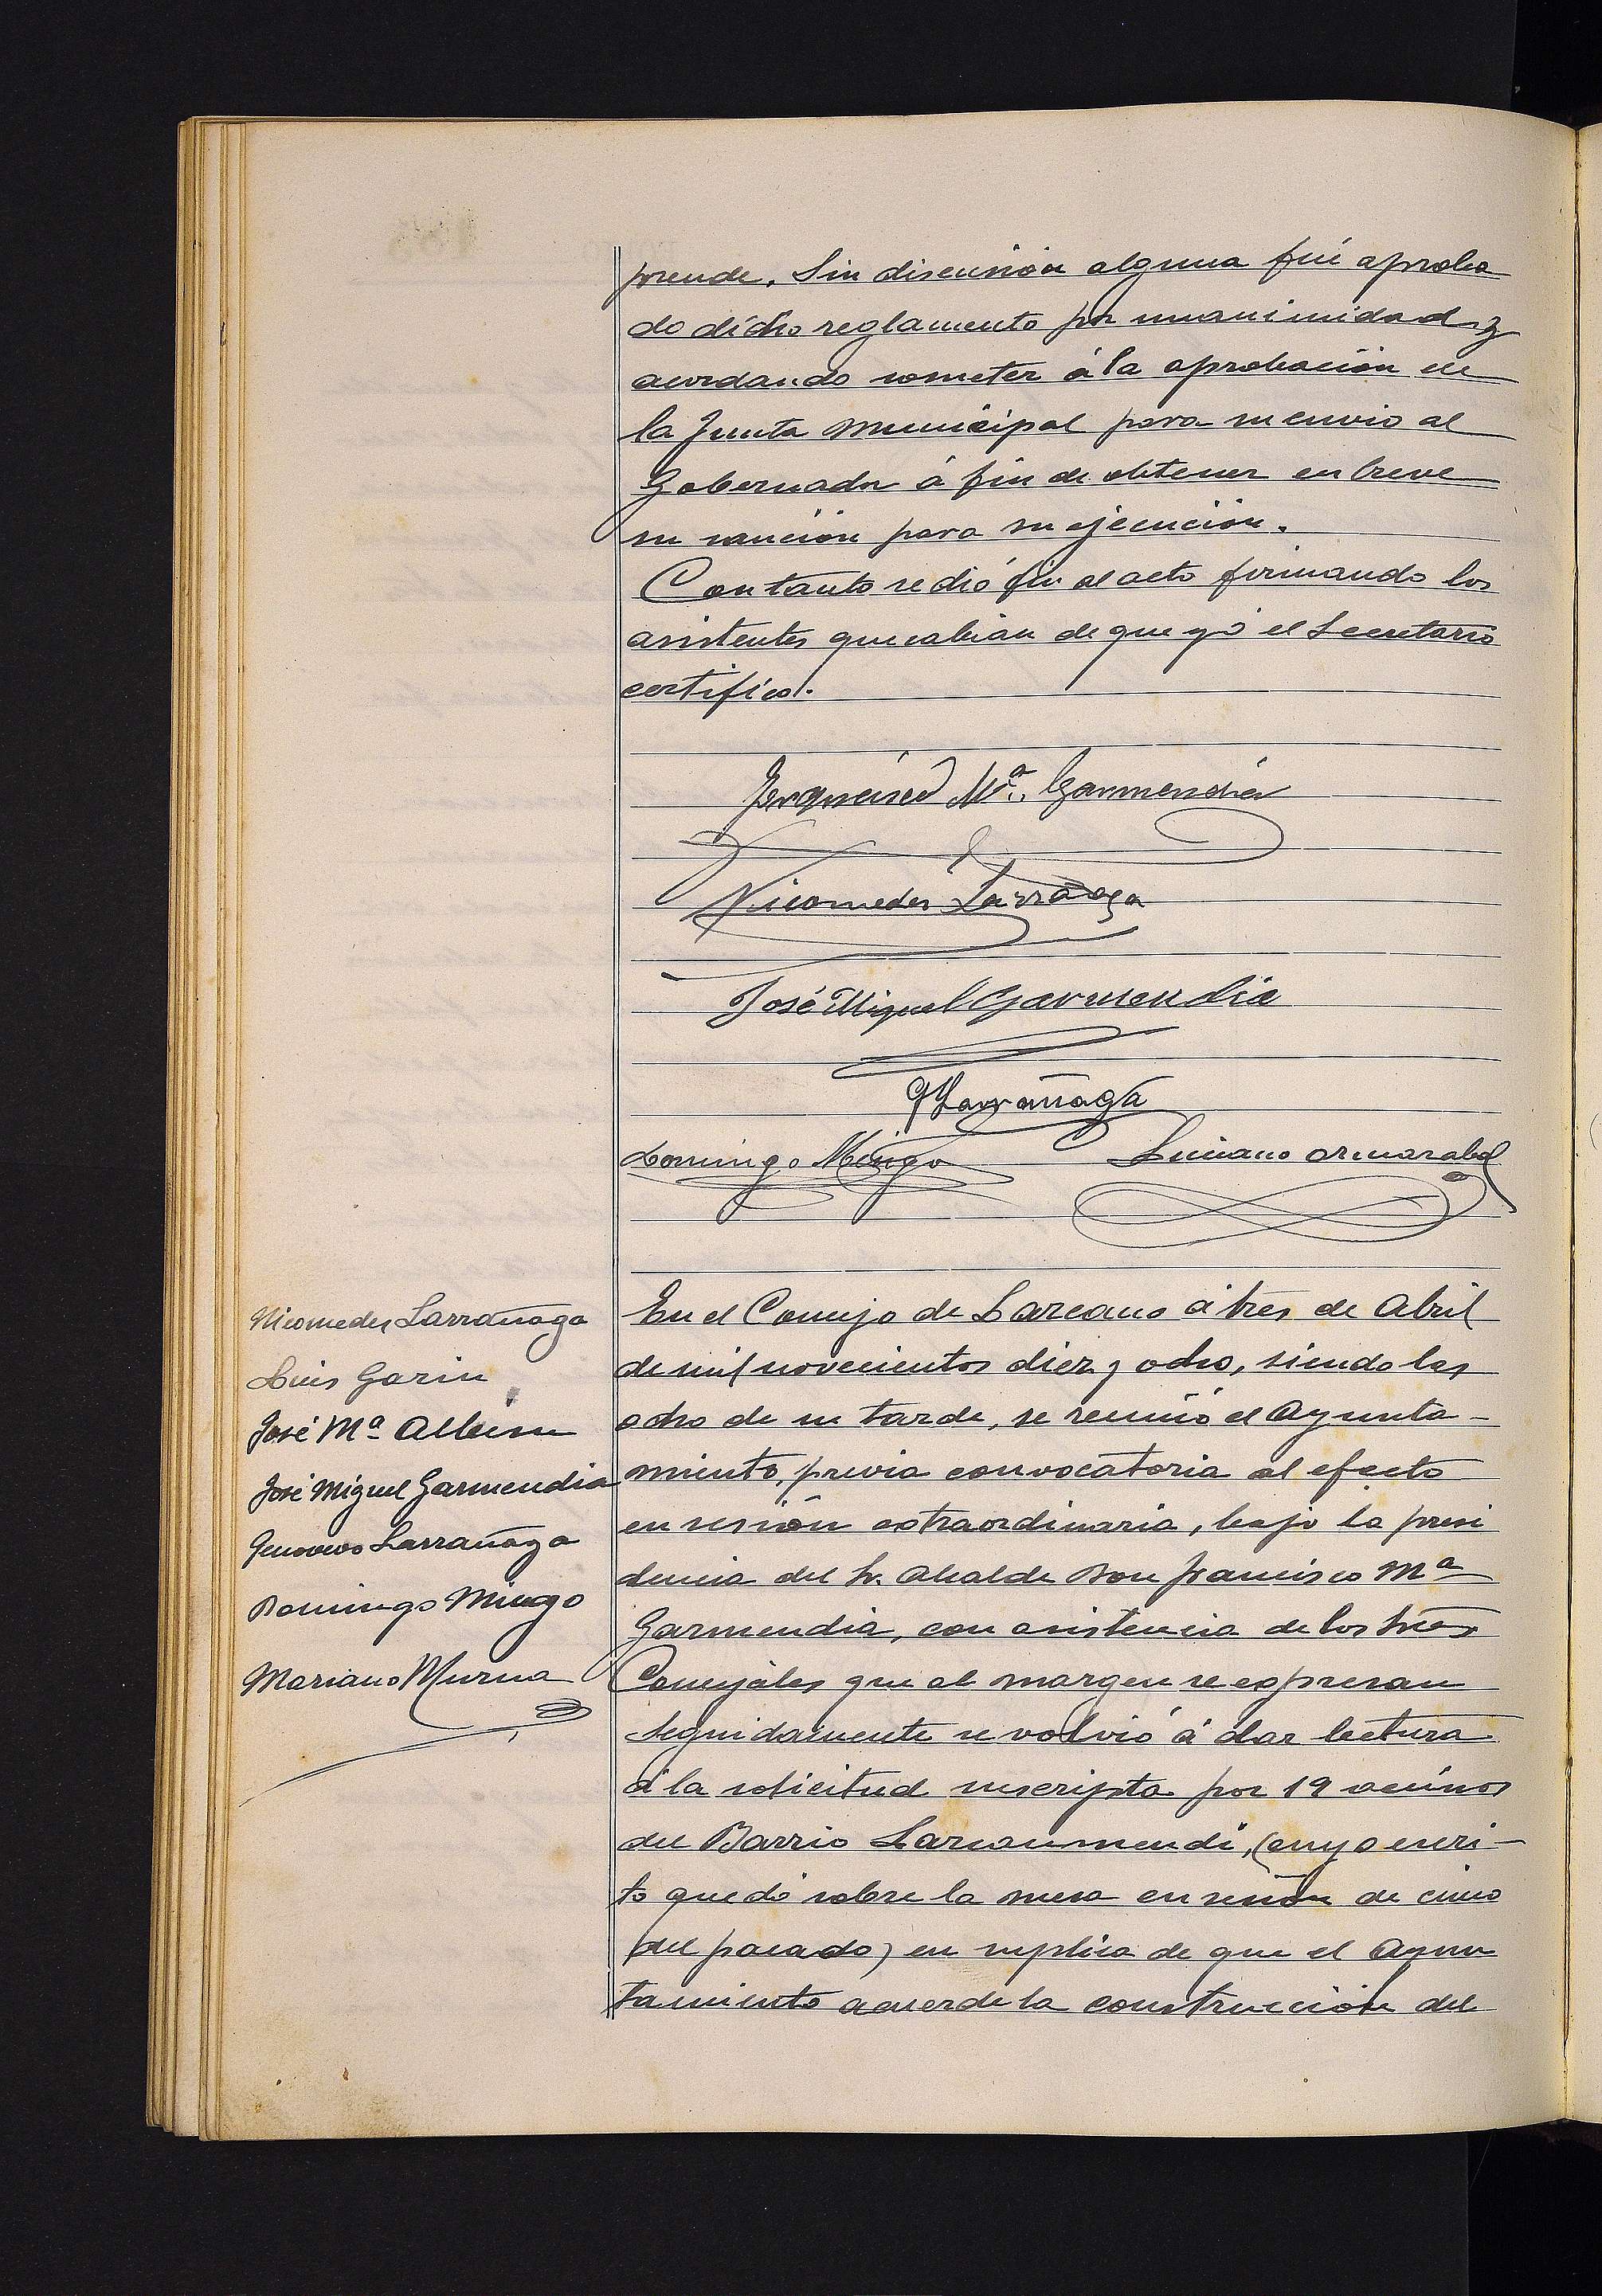 prende. Sin discusión alguna fué aproba
do dicho reglamento por unanimidad y
acordando someter á la aprobación de
la Junta Municipal para su envio al
Gobernador á fin de obtener en breve
su sanción para su ejecución.
Con tanto se dió fin al acto firmando los
asistentes que sabian de que yó el Secretario
certifico.
Francisco Mª Garmendia
Nicomedes Larrañaga
José Miguel Garmendia
G Larrañaga
Domingo Mingo
Luciano Armazabal
Nicomedes Larrañaga
Luis Garin
José Mª Albisu
José Miguel Garmendia
Genovevo Larrañaga
Domingo Mingo
Mariano Murua
En el Concejo de Lazcano á tres de Abril
de mil novecientos diez y ocho, siendo las
ocho de su tarde, se reunió el Ayunta-
miento, previa convocatoria al efecto
en sesión extraordinaria, bajo la presi
dencia del Sr. Alcalde Don Francisco Mª
Garmendia, con asistencia de los Sres
Concejales que al margen se expresan
Seguidamente se volvió á dar lectura
á la solicitud suscripta por 19 vecinos
del Barrio Lazcaumendi, (cuyo escri-
to quedó sobre la mesa en sesión de cinco
del pasado) en suplica de que el Ayun
tamiento acuerde la construcción del